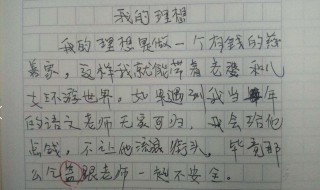 我的理想
我的理想是做一个有钱的慈
善家，这样我就能带着老婆和儿
女环游世界，如果遇到我当年
的语文老师无家可归，我会给他
点钱，不让他流浪街头，毕竟那
么个蓝跟老师一起不安全。